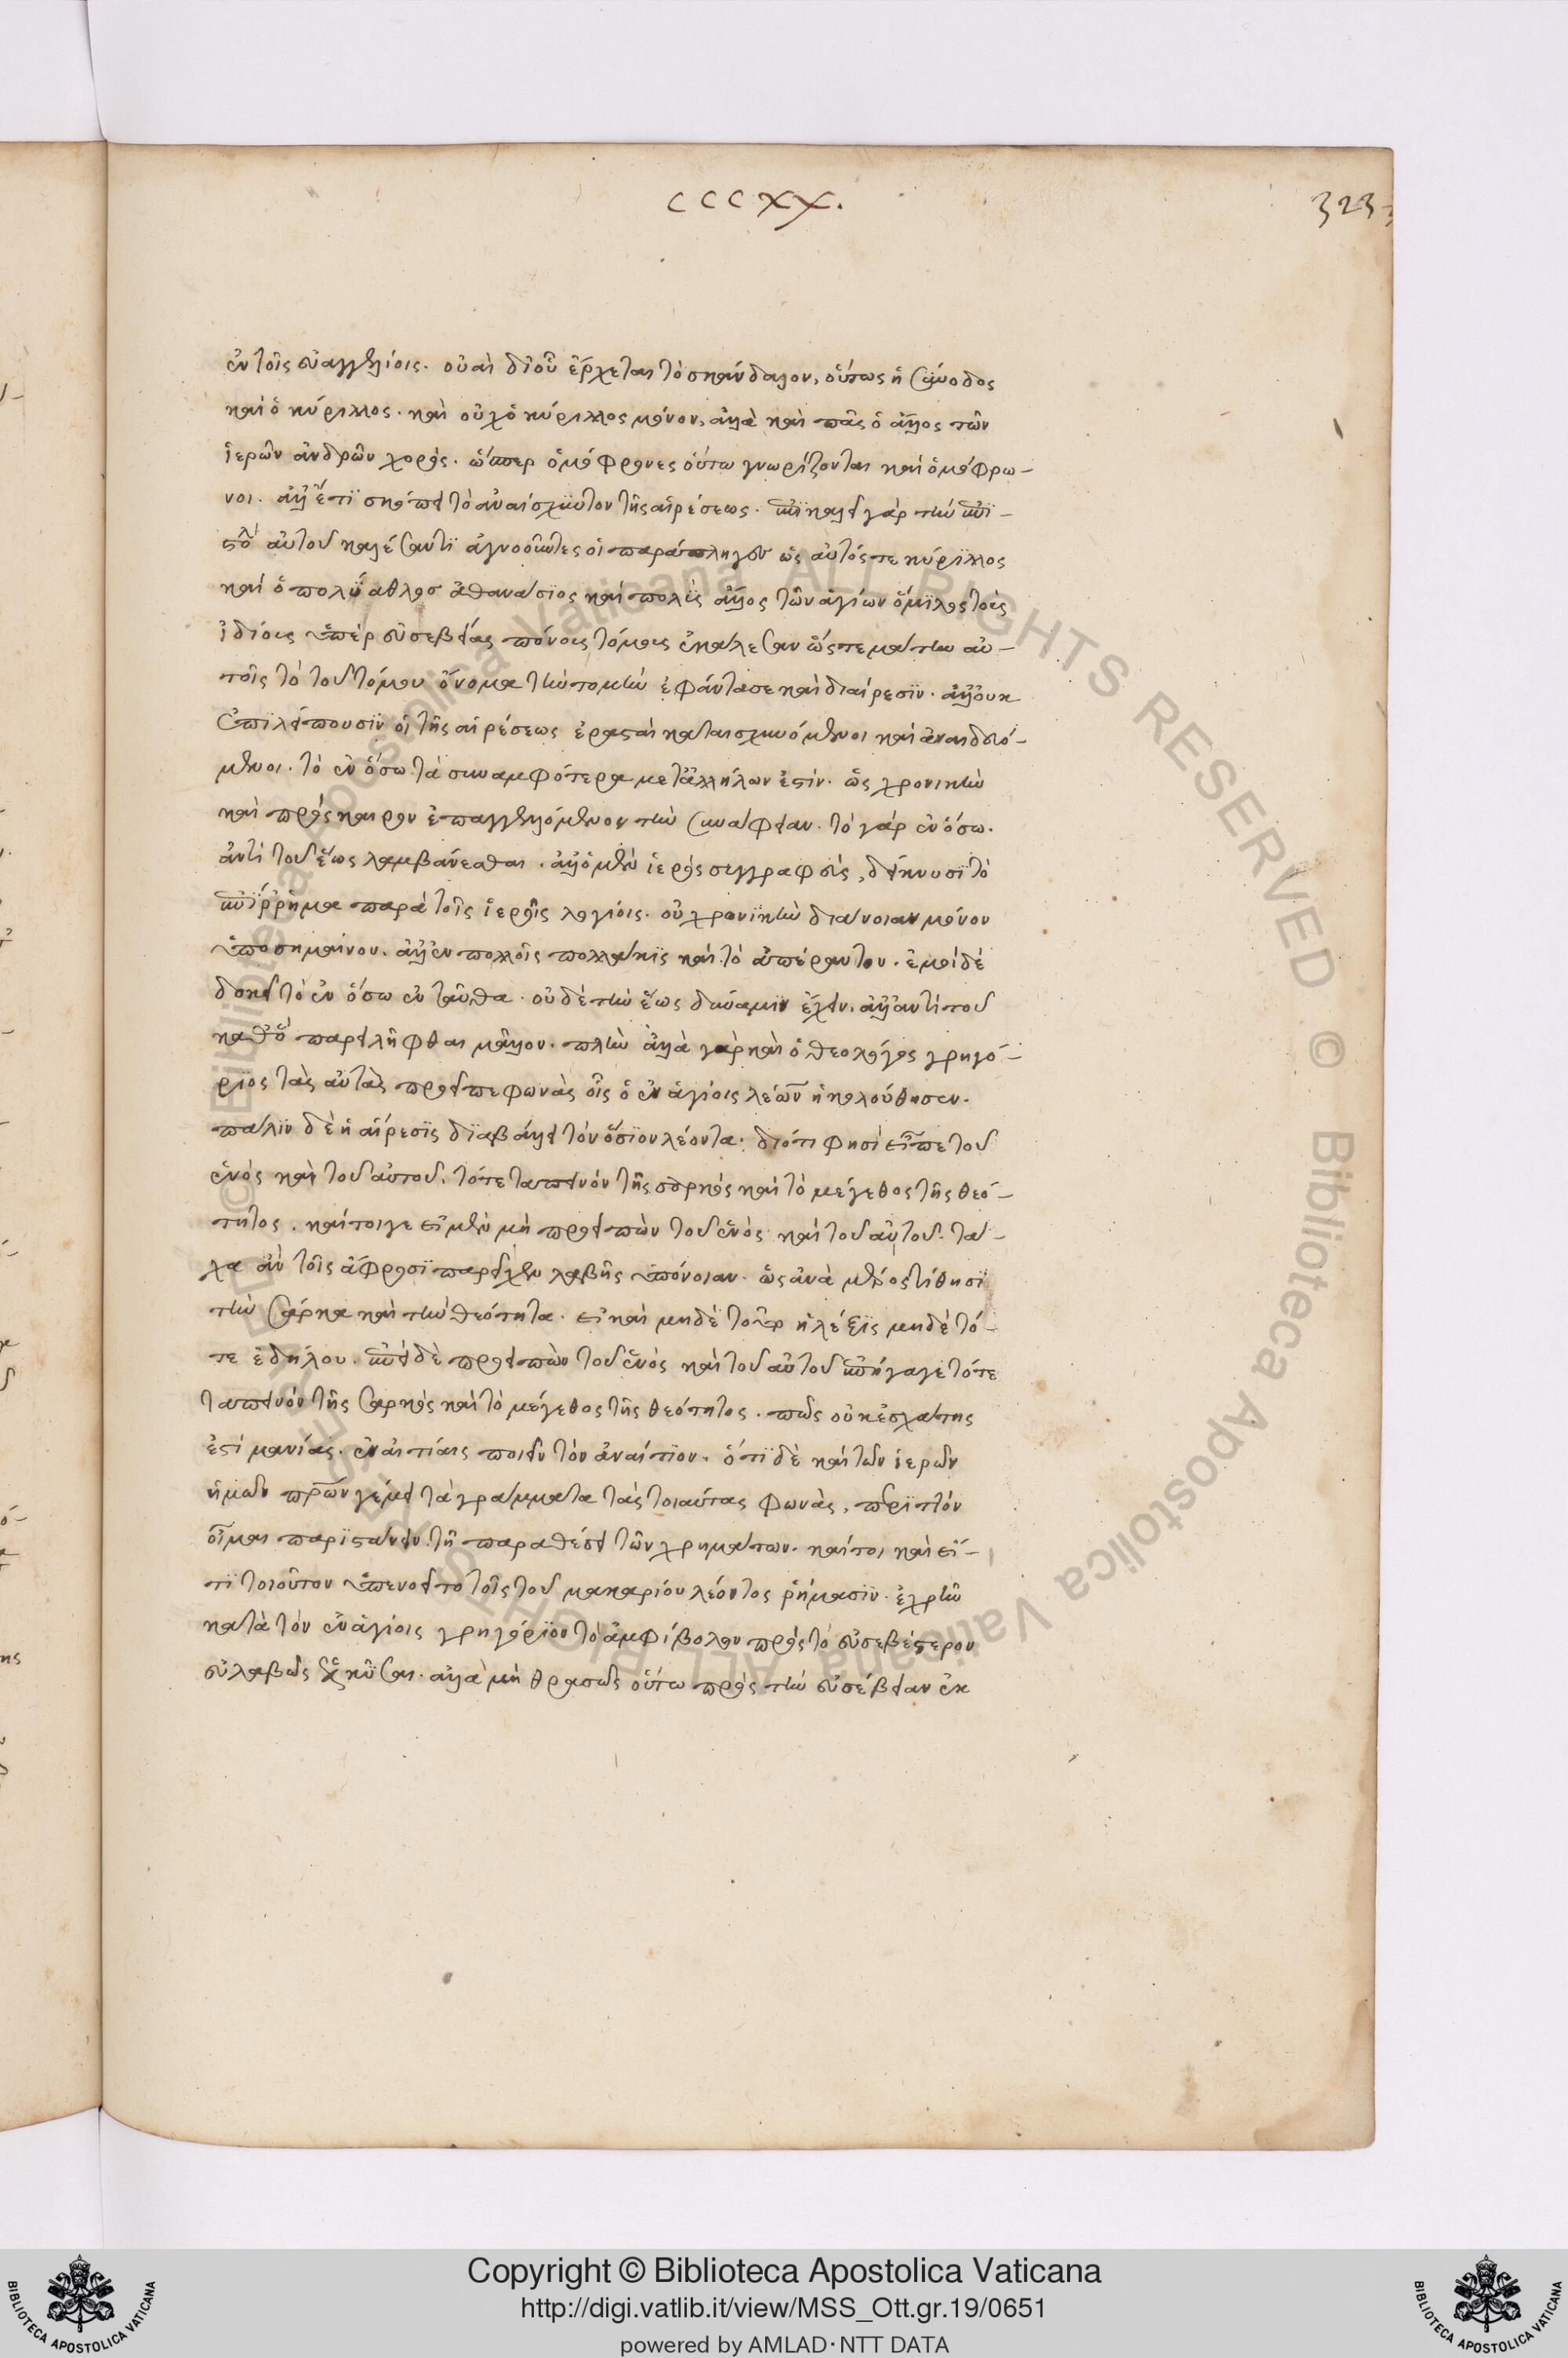 CCCXX.
323
ἐν τοῖς εὐαγγελίοις. οὐαὶ δι' οὗ ἔρχεται τὸ σκάνδαλον, οὕτως ἡ σύνοδος
καὶ ὁ κύριλλος. καὶ οὐχ ὁ κύριλλος μόνον, ἀλλὰ καὶ πᾶς ὁ ἄλλος τῶν
ἱερῶν ἀνδρῶν χορός. ὥσπερ ὁμόφρονες οὕτω γνωρίζονται καὶ ὁμόφρω-
νοι. ἀλλ' ἔτι σκόπει τὸ ἀναίσχυντον τῆς αἱρέσεως. ἐπικαλεῖ γὰρ τὴν ἐπι-
στολὴν αὐτοῦ καλέσαντι ἀγνοοῦντες οἱ παραπλῆγες ὡς αὐτός τε κύριλλος
καὶ ὁ πολύαθλος ἀθανάσιος καὶ πολὺς ἄλλος τῶν ἁγίων ὅμιλος τοὺς
ἰδίους ὑπὲρ εὐσεβείας πόνους τόμους ἐκάλεσαν ὥστε μάτην αὐ-
τοῖς τὸ τοῦ τόμου ὄνομα τὴν τομὴν ἐφάντασε καὶ διαίρεσιν. ἀλλ' οὐκ
ἐπιλείπουσιν οἱ τῆς αἱρέσεως ἐρασταὶ καταισχυνόμενοι καὶ ἀναιδευό-
μενοι. τὸ ἐν ὅσω τὰ συναμφότερα μετ' ἀλλήλων ἐστίν. ὡς χρονικὴν
καὶ πρὸς καιρὸν ἐπαγγελλόμενον τὴν συνάφειαν. τὸ γὰρ ἐν ὅσω.
ἀντὶ τοῦ ἕως λαμβάνεσθαι. ἀλλ' ὁ μὲν ἱερὸς συγγραφεὺς, δείκνυσι τὸ
ἐπίρρημα παρὰ τοῖς ἱεροῖς λογίοις. οὐ χρονικὴν διάνοιαν μόνον
ὑποσημαῖνον. ἀλλ' ἐν πολλοῖς πολλάκις καὶ τὸ ἀπέραντον. ἐμοὶ δὲ
δοκεῖ τὸ ἐν ὅσω ἐνταῦθα. οὐδὲ τὴν ἕως δύναμιν ἔχειν. ἀλλ' ἀντὶ τοῦ
καθὸ παρειλῆφθαι μᾶλλον. πλὴν ἀλλὰ γὰρ καὶ ὁ θεολόγος γρηγό-
ριος τὰς αὐτὰς προεῖπε φωνὰς οἷς ὁ ἐν ἁγίοις λέων ἠκολούθησεν.
πάλιν δὲ ἡ αἵρεσις διαβάλλει τὸν ὅσιον λέοντα. διότι φησὶ εἶπε τοῦ
ἑνὸς καὶ τοῦ αὐτοῦ. τό τε ταπεινὸν τῆς σαρκὸς καὶ τὸ μέγεθος τῆς θεό-
τητος. καίτοιγε εἰ μὲν μὴ προειπὼν τοῦ ἑνὸς καὶ τοῦ αὐτοῦ. τά-
χα ἂν τοῖς ἄφροσι παρεῖχεν λαβῆς ὑπόνοιαν. ὡς ἀνὰ μέρος τίθησι
τὴν σάρκα καὶ τὴν θεότητα. εἰ καὶ μηδὲ τοῦθ' ἡ λέξις μηδὲ τό-
τε ἐδήλου. ἐπεὶ δὲ προειπὼν τοῦ ἑνὸς καὶ τοῦ αὐτοῦ ἐπήγαγε τό τε
ταπεινὸν τῆς σαρκὸς καὶ τὸ μέγεθος τῆς θεότητος. πῶς οὐκ ἐσχάτης
ἐστὶ μανίας. ἐν αἰτίαις ποιεῖν τὸν ἀναίτιον. ὅτι δὲ καὶ τῶν ἱερῶν
ἡμῶν πρων γέμει τὰ γράμματα τὰς τοιαύτας φωνὰς, περιττὸν
οἶμαι παριστάνειν τῇ παραθέσει τῶν χρημάτων. καίτοι καὶ εἴ-
τι τοιοῦτον ὑπενοεῖτο τοῖς τοῦ μακαρίου λέοντος ῥήμασιν. ἐχρῆν
κατὰ τὸν ἐν ἁγίοις γρηγόριον τὸ ἀμφίβολον πρὸς τὸ εὐσεβέστερον
εὐλαβῶς ἑλκῦσαι. ἀλλὰ μὴ θρασέως οὕτω πρὸς τὴν εὐσέβειαν ἐκ
Copyright © Biblioteca Apostolica Vaticana
http://digi.vatlib.it/view/MSS_Ott.gr.19/0651
powered by AMLAD·NTT DATA